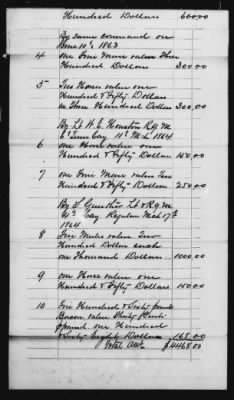 Hundred Dollars 600.00
By same command on
June 10th 1863
4 One fine Mare value Three
Hundred Dollars 300.00
5 Two Horses value one
Hundred & Fifty Dollars
is Three Hundred Dollars 300.00
By Lt H. E. Houston R.Q.M.
Tenn Cay 11th Mch 1864
6 One Horse value one
Hundred & Fifty Dollars 150.00
7 one fine Mare value Two
Hundred & Fifty Dollars 250.00
By S. Gunther Lt & R.Q.M.
Cay Regulars Mch 17th
1864
8 Five Mules value Two
Hundred Dollars each
one Thousand Dollars 1000.00
9 one Horse value one
Hundred & Fifty Dollars 150.00
10 Five Hundred & Sixty pounds
Bacon value Thirty Cents
pound one Hundred
& Sixty Eight Dollars 168.00
Total Amt $4468.00